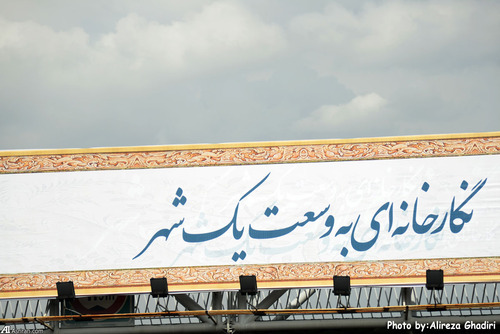 نگارخانه‌ای به وسعت یک شهر
Photo by:Alireza Ghadiri